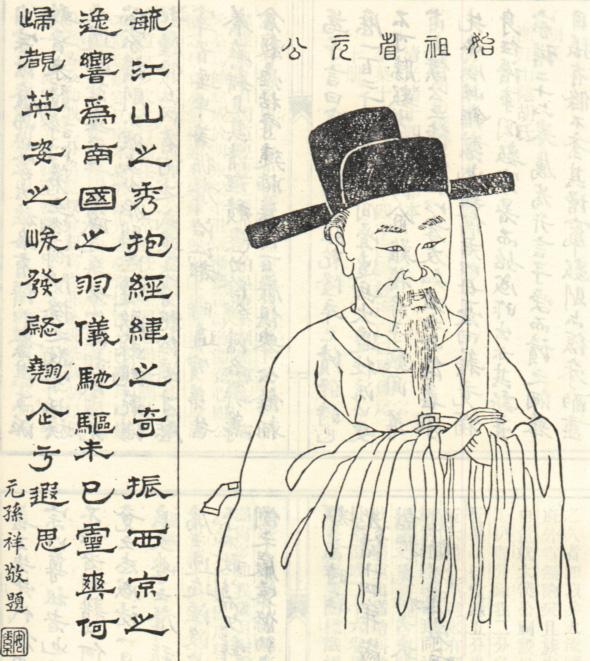 始祖省元公
毓江山之秀抱經緯之奇振西京之
逸響爲南國之羽儀馳驅未已靈爽何
歸覩英姿之峻發翹企乎遐思
元孫祥敬題